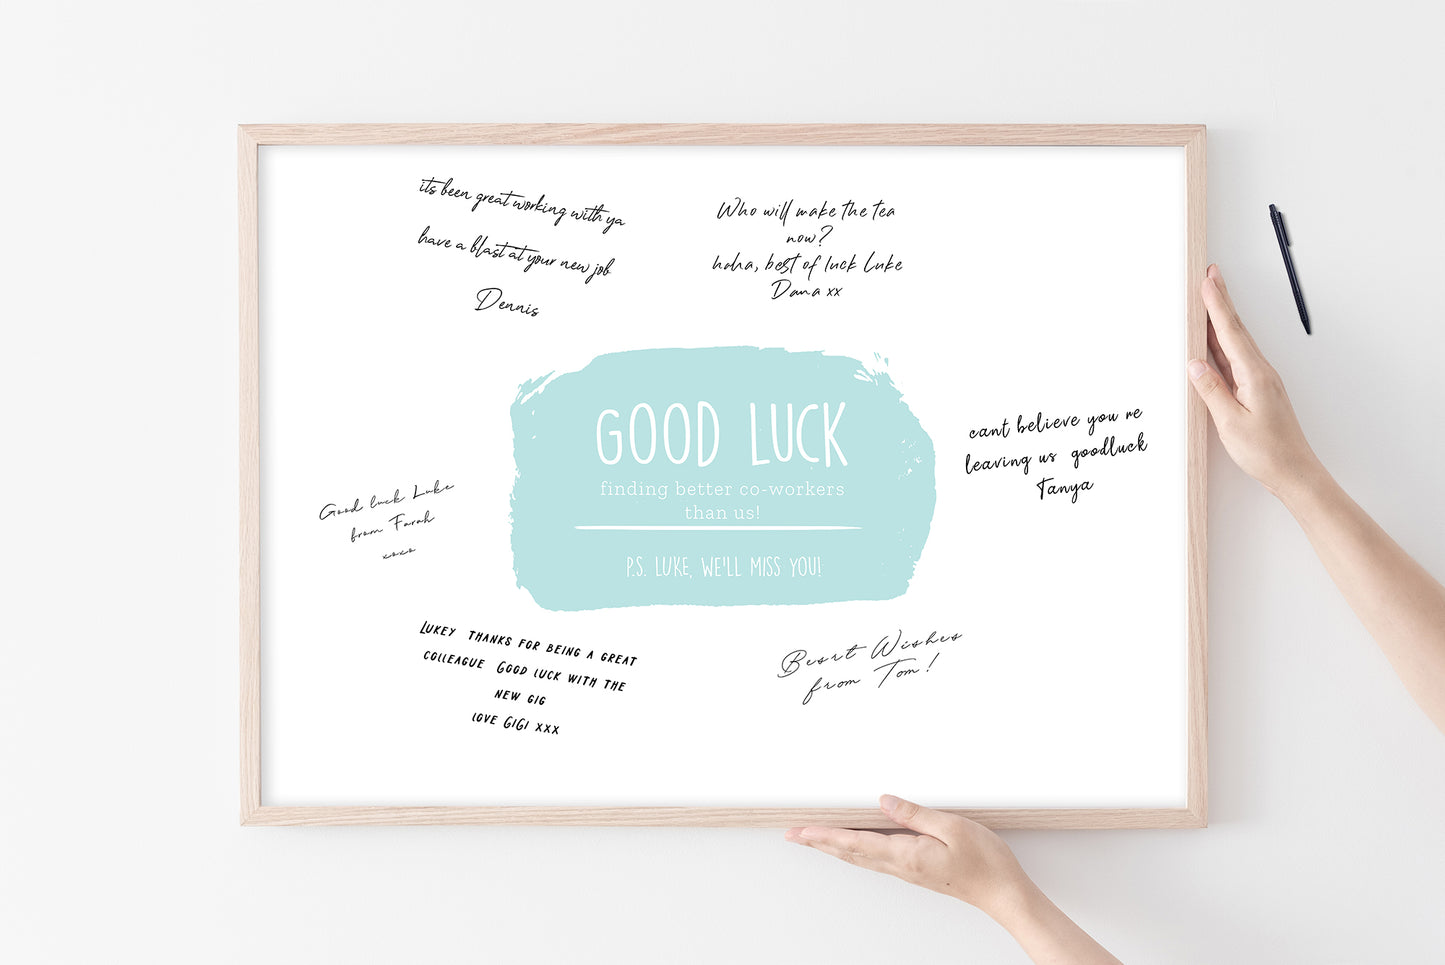 its been great working with ya
have a blast at your new job
Dennis
Who will make the tea
now?
haha, best of luck Luke
Dana xx
GOOD LUCK
finding better co-workers
than us!
P.S. LUKE, WE'LL MISS YOU!
cant believe you re
leaving us goodluck
Tanya
Good luck Luke
from Farah
xoxo
LUKEY THANKS FOR BEING A GREAT
COLLEAGUE GOOD LUCK WITH THE
NEW GIG
LOVE GIGI XXX
Besrt Wishes
from Tom!